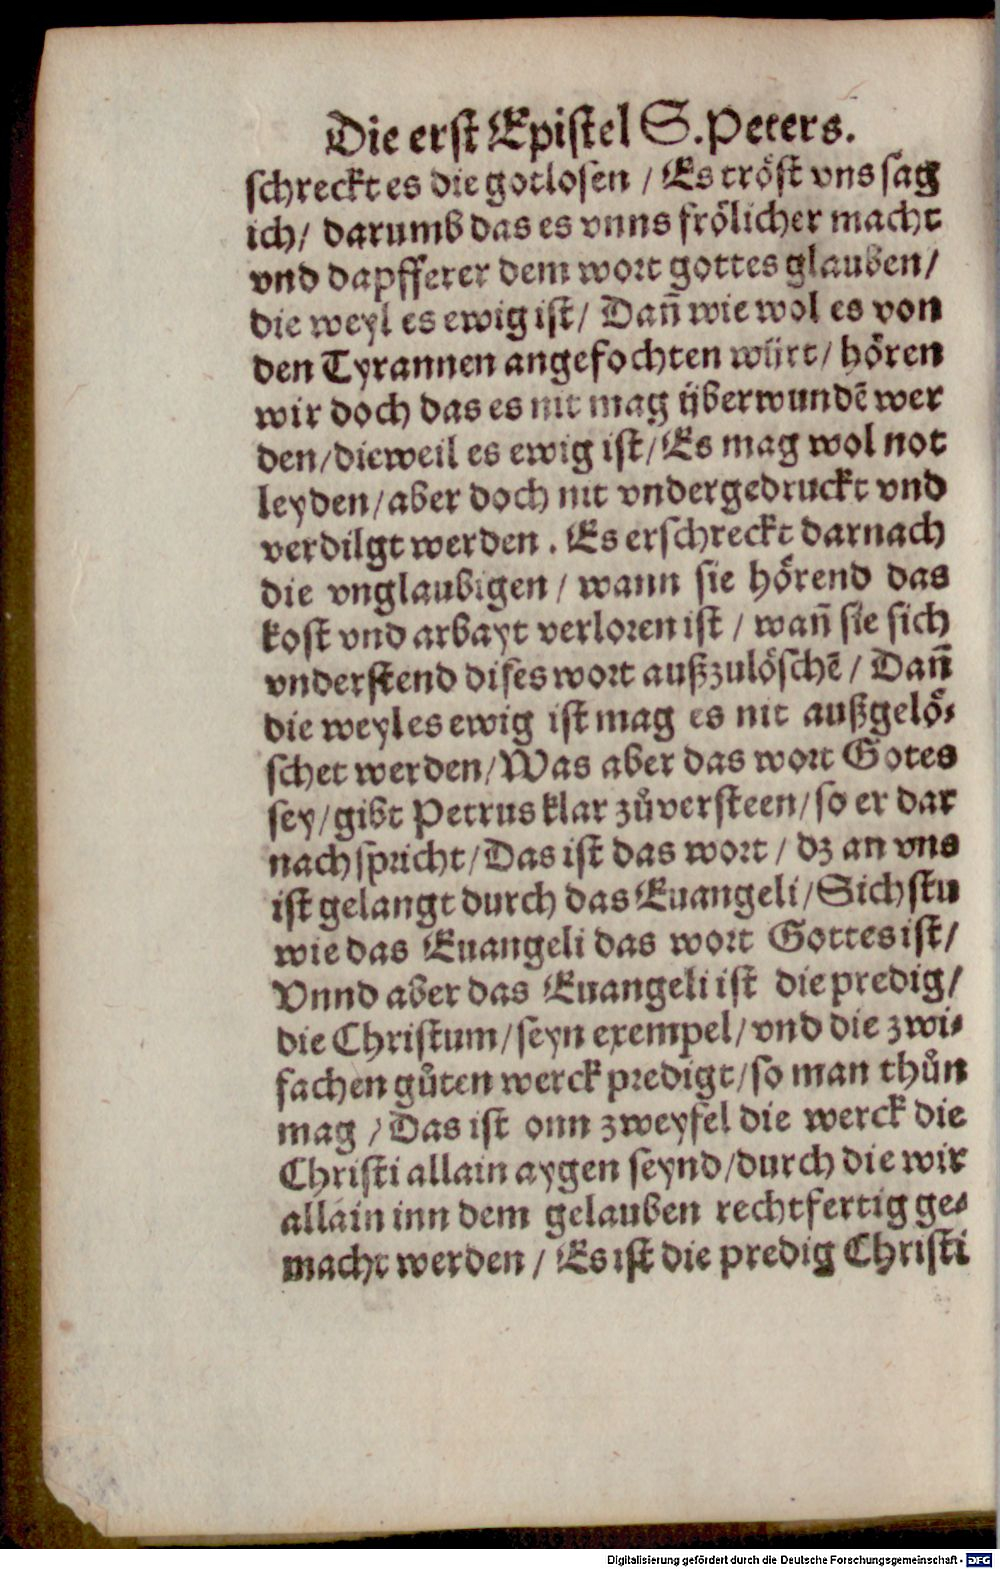 Die erst Epistel S. Peters.
schreckt es die gotlosen / Es tröst vns sag
ich / darumb das es vnns frölicher macht
vnd dapfferer dem wort gottes glauben /
die weyl es ewig ist / Dañ wie wol es von
den Tyrannen angefochten würt / hören
wir doch das es nit mag überwundē wer
den / dieweil es ewig ist / Es mag wol not
leyden / aber doch nit vndergedruckt vnd
verdilgt werden . Es erschreckt darnach
die vnglaubigen / wann sie hörend das
kost vnd arbayt verloren ist / wañ sie sich
vnderstend dises wort außzulöschē / Dañ
die weyl es ewig ist mag es nit außgelö⸗
schet werden / Was aber das wort Gotes
sey / gibt Petrus klar zůversteen / so er dar
nach spricht / Das ist das wort / dz an vns
ist gelangt durch das Euangeli / Sichstu
wie das Euangeli das wort Gottes ist /
Vnnd aber das Euangeli ist die predig /
die Christum / seyn exempel / vnd die zwi⸗
fachen gůten werck predigt / so man thůn
mag / Das ist onn zweyfel die werck die
Christi allain aygen seynd / durch die wir
allain inn dem gelauben rechtfertig ge⸗
macht werden / Es ist die predig Christi
Digitalisierung gefördert durch die Deutsche Forschungsgemeinschaft - DFG